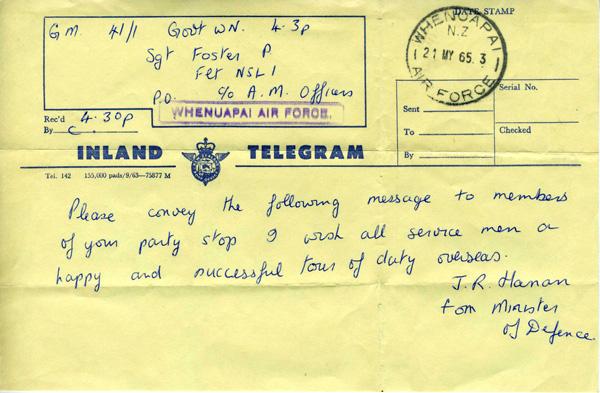 G.M. 41/1 Govt WN. 4.3p
Sgt Foster P
Flt NSL 1
P.O. c/o A.M. Officers
WHENUAPAI AIR FORCE.
Rec'd 4.30p
By C.
DATE STAMP
WHENUAPAI
N.Z
21 MY 65.3
AIR FORCE
Serial No.
Sent
To
Checked
By
INLAND TELEGRAM
Tel. 142 155,000 pads/9/63—75877 M
Please convey the following message to members
of your party stop I wish all service men a
happy and successful tour of duty overseas.
J.R. Hanan
for Minister
of Defence.